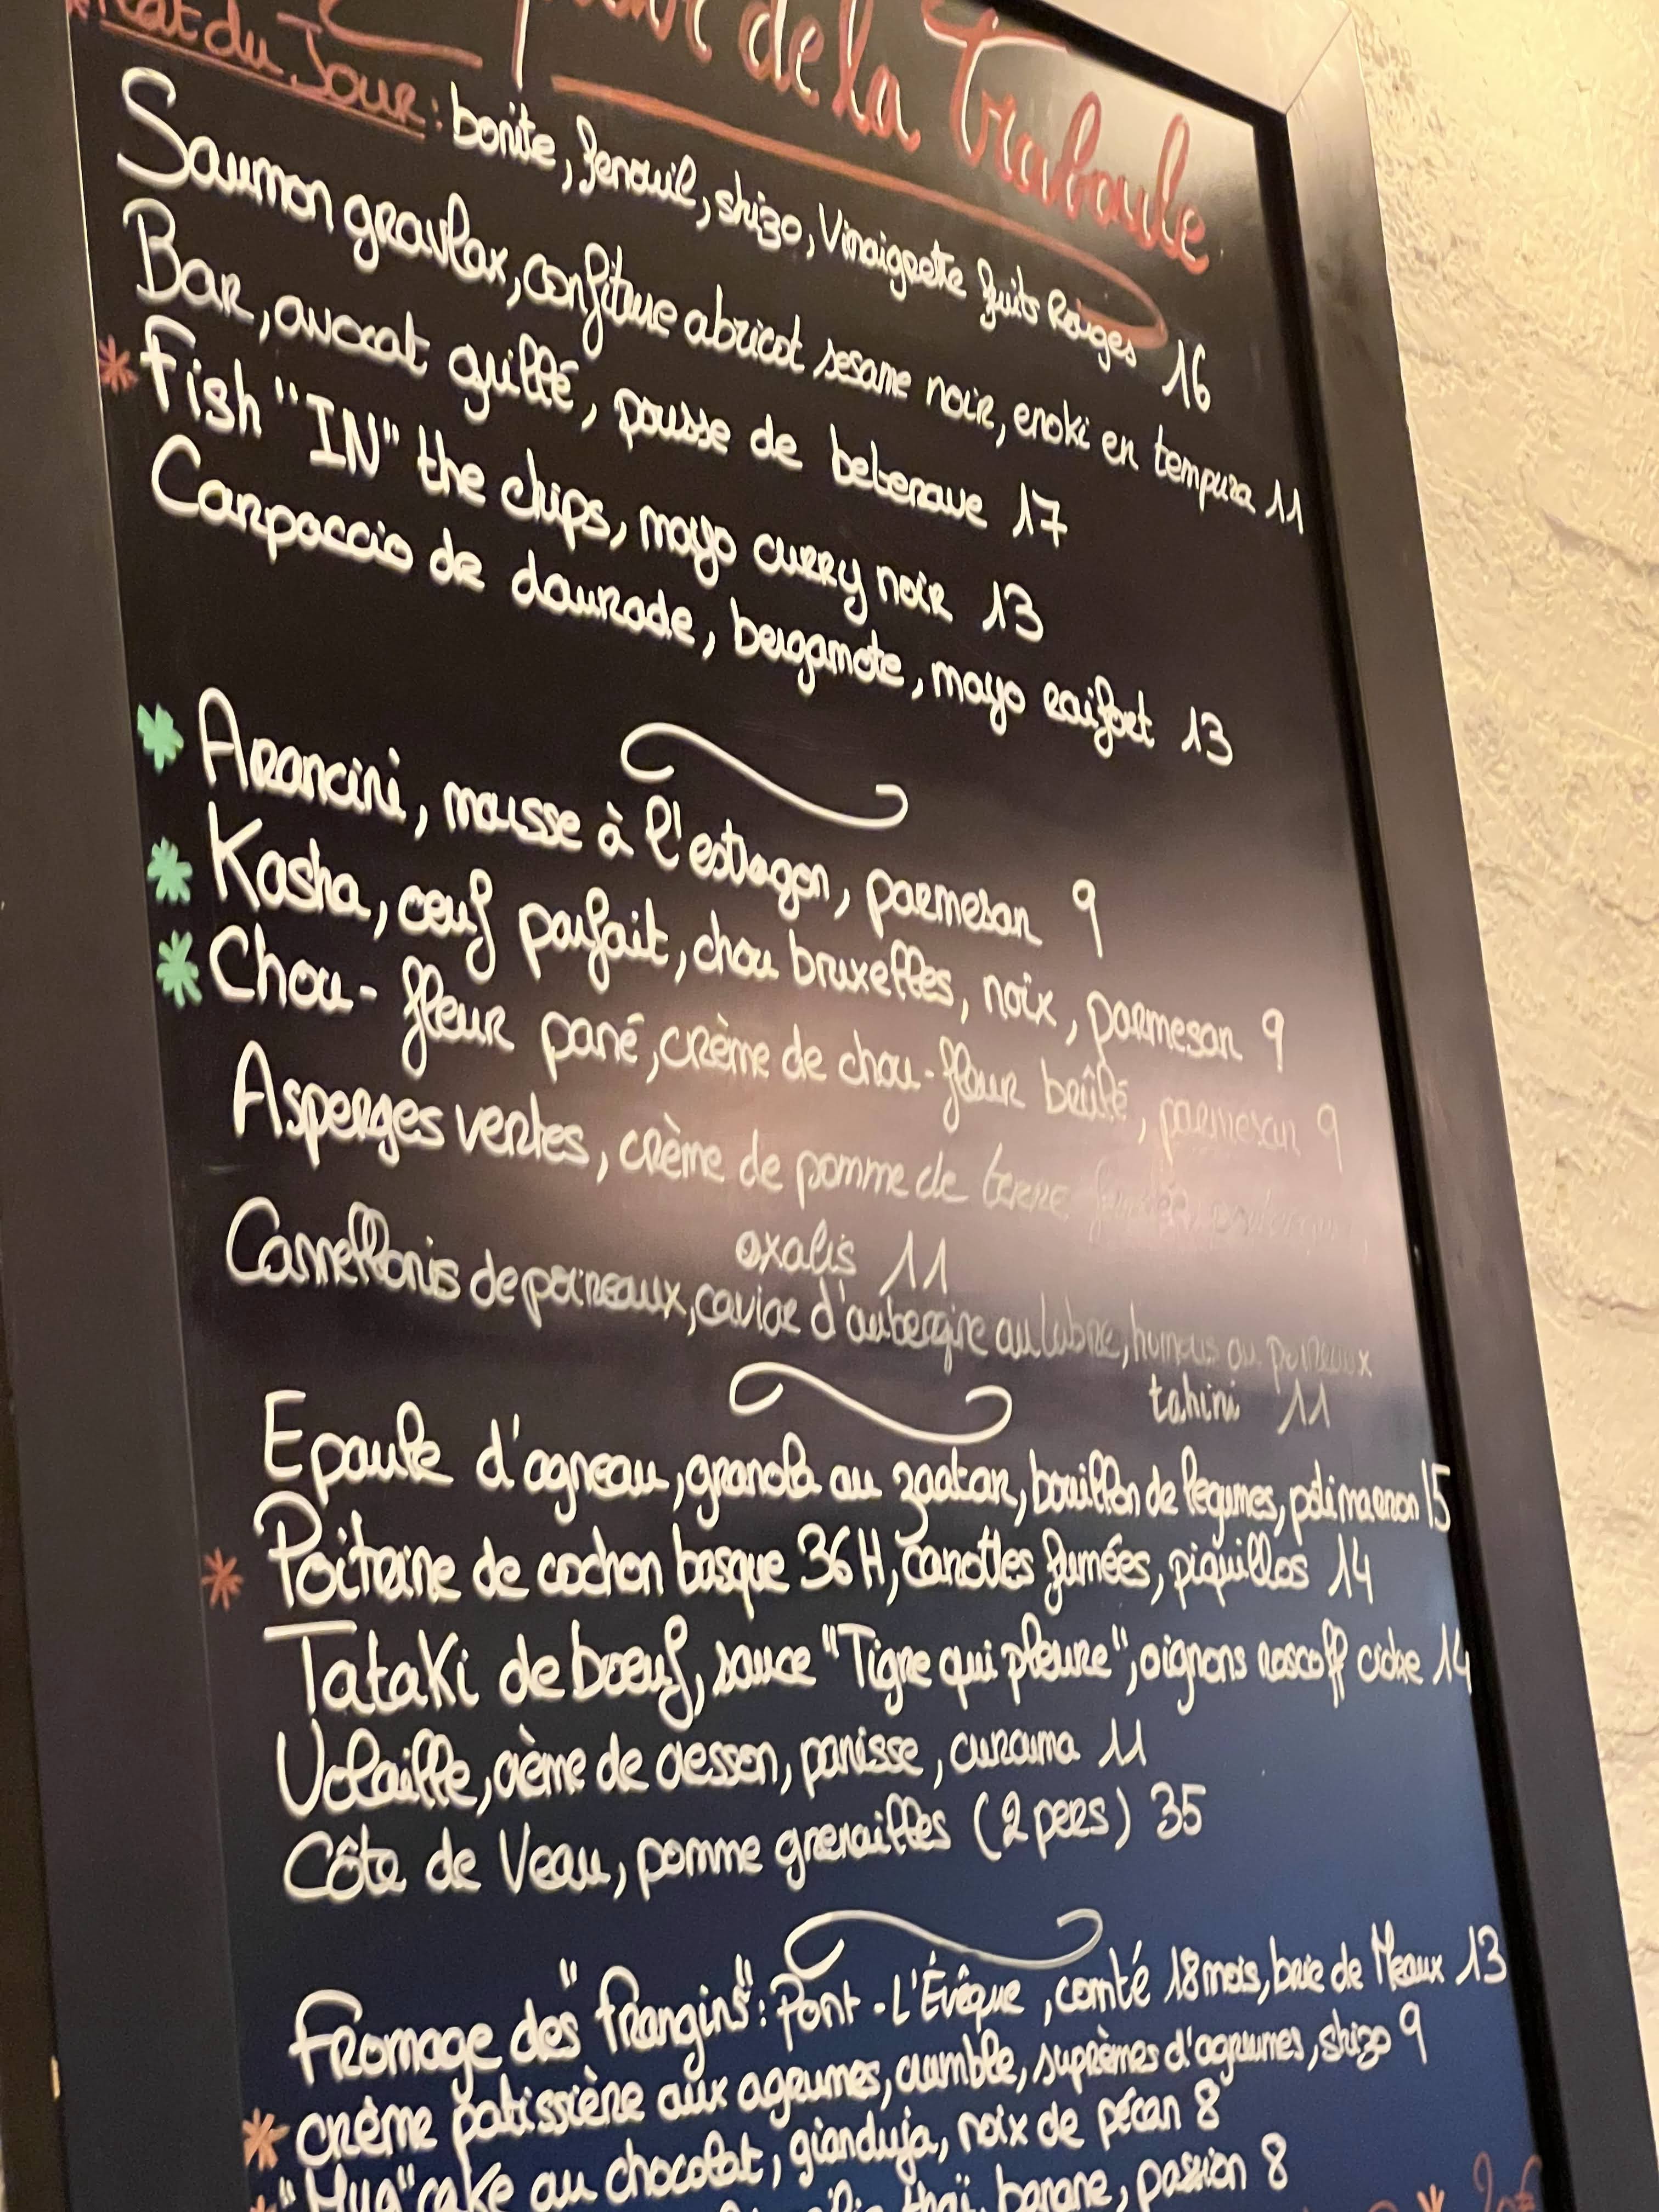 de la Traboule
du Jour : bonite, fenouil, shizo, Vinaigrette fruits Rouges 16
Saumon gravlax, confiture abricot sesame noir, enoki en tempura 11
Bar, avocat grillé, pousse de betterave 17
* Fish "IN" the chips, mayo curry noir 13
Carpaccio de daurade, bergamote, mayo raifort 13
* Arancini, mousse à l'estragon, parmesan 9
* Kasha, oeuf parfait, chou bruxelles, noix, parmesan 9
* Chou-fleur pané, crème de chou-fleur brûlé, parmesan 9
Asperges vertes, crème de pomme de terre
oxalis 11
Cannellonis de poireaux, caviar d'aubergine au
tahini 11
Epaule d'agneau, granola au zaatar, bouillon de legumes, 15
* Poitrine de cochon basque 36H, carottes fumées, piquillos 14
Tataki de boeuf, sauce "Tigre qui pleure", oignons roscoff cidre 14
Volaille, crème de cresson, panisse, curcuma 11
Côte de Veau, pomme grenailles (2 pers) 35
Fromage des "frangins": Pont-L'Évêque, comté 18 mois, brie de Meaux 13
* crème patissière aux agrumes, crumble, suprèmes d'agrumes, shizo 9
"Mug" cake au chocolat, gianduja, noix de pécan 8
thaï, banane, passion 8